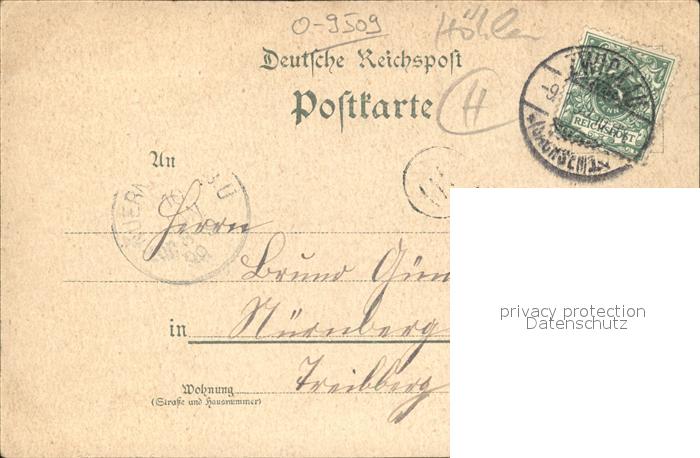 O-9509
Höhler
Deutsche Reichspost
Postkarte
H
ZWICKAU
(SACHSEN)
REICHSPOST
An
Herrn
Bruno Gün
in Nürnberg
Wohnung
(Straße und Hausnummer)
privacy protection
Datenschutz